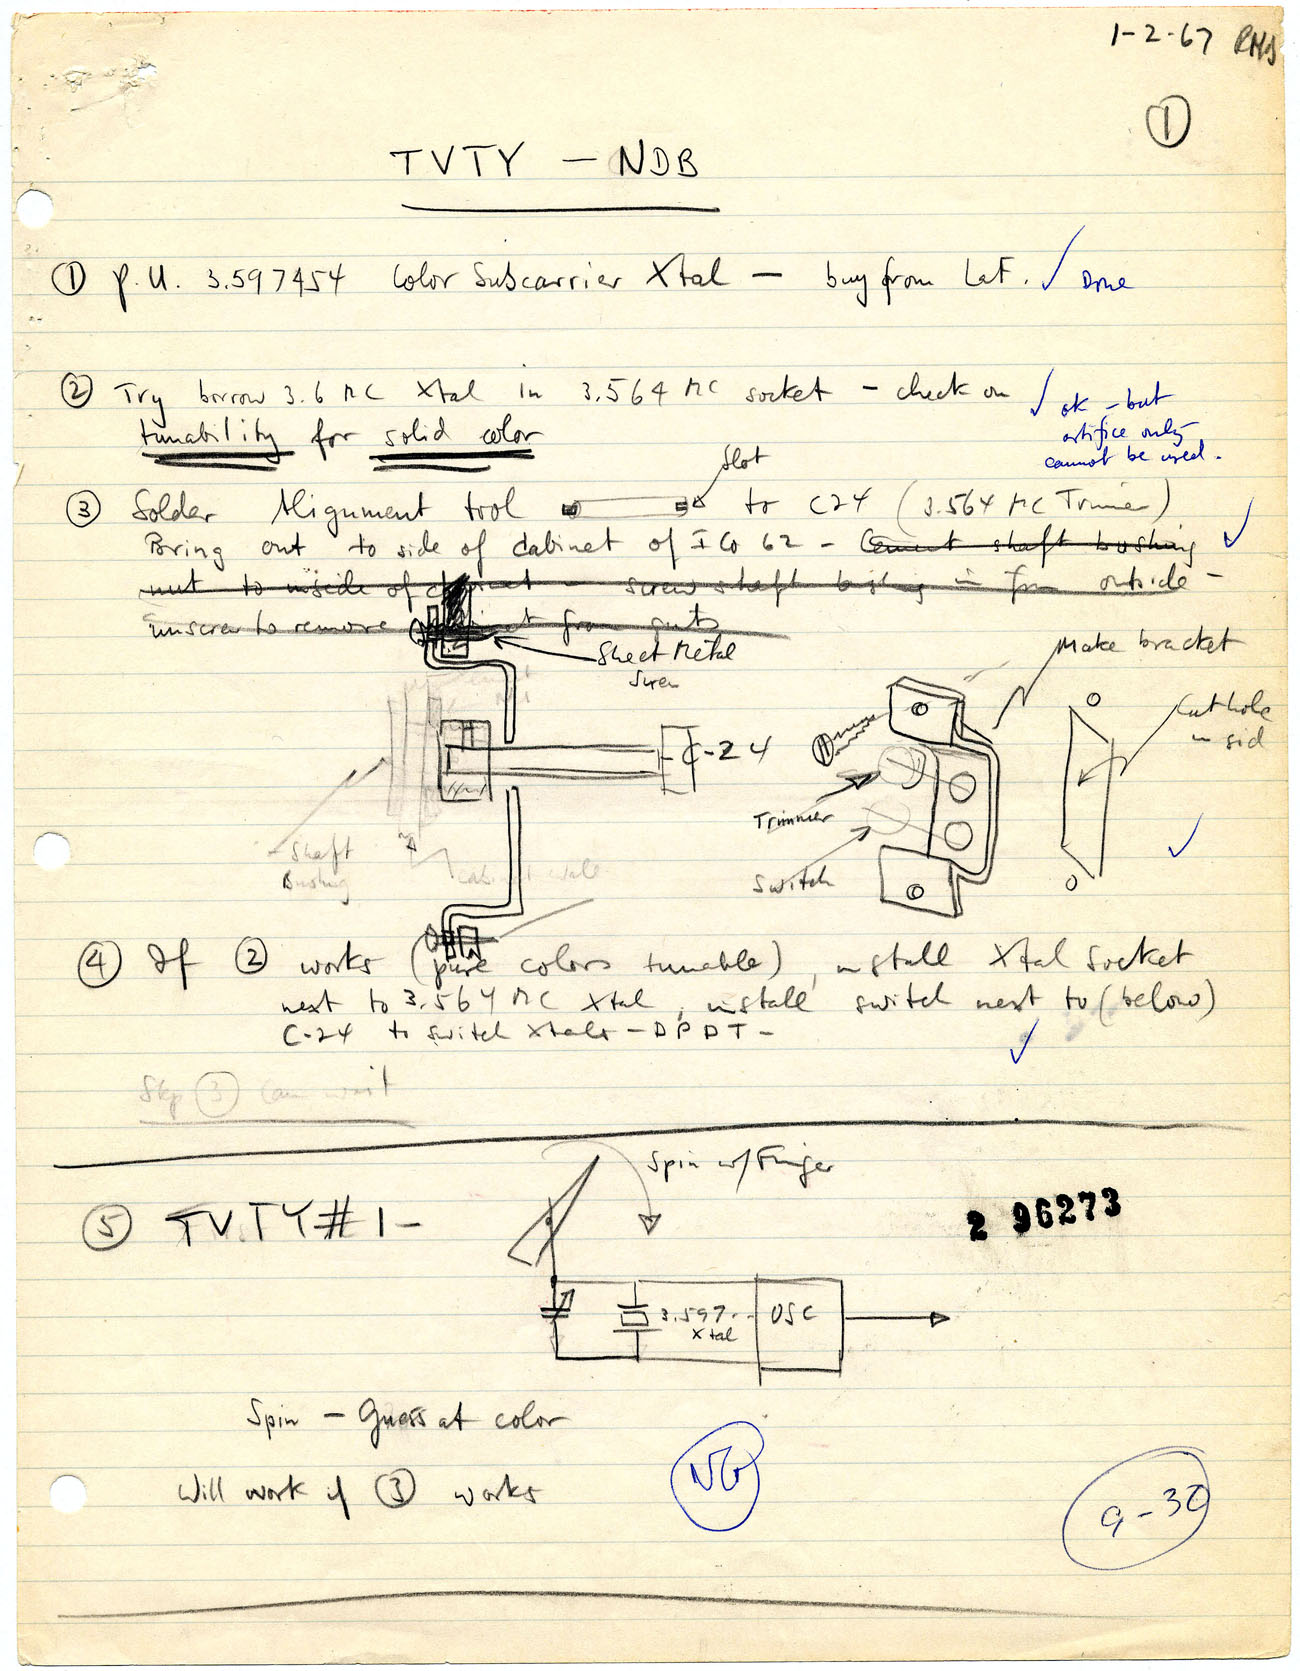 1-2-67 RHB
①
TVTY - NDB
① P.U. 3.597454 Color Subcarrier Xtal - buy from Laf. ✓ Done
② Try borrow 3.6 MC Xtal in 3.564 MC socket - check on
tunability for solid color
✓ ok - but
artifice only
cannot be used.
Slot
③ Solder Alignment tool to C24 (3.564 MC Trimmer)
Bring out to side of cabinet of ICO 62 - Cement shaft bushing ✓
nut to inside of cabinet - screw shaft bushing in from outside -
unscrew to remove cabinet from guts
Sheet Metal
Screw
Make bracket
Cut hole
in side
C-24
Trimmer
Shaft
Bushing
Cabinet wall
Switch
✓
④ If ② works (pure colors tunable), install Xtal Socket
next to 3.564 MC Xtal, install switch next to (below)
C-24 to switch Xtals - DPDT -
✓
Skip ③ Can wait
Spin w/Finger
⑤ TVTY #1-
2 96273
3.597--
Xtal
OSC
Spin - Guess at color
NG
Will work if ③ works
9-30